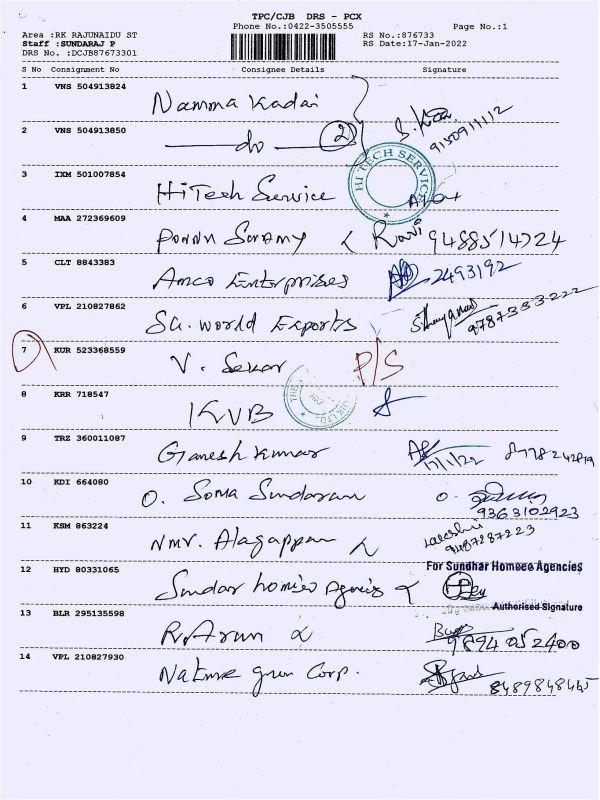 TPC/CJB DRS - PCX
Phone No.:0422-3505555 Page No.:1
Area :RK RAJUNAIDU ST RS No.:876733
Staff :SUNDARAJ P RS Date:17-Jan-2022
DRS No. :DCJB87673301
S No Consignment No Consignee Details Signature
1 VNS 504913824 Namma Kadai
2 VNS 504913850 do 2 9150911112
3 IXM 501007854 HiTech Service HI TECH SERVICE
4 MAA 272369609 Ponnu Swamy Ravi 9488514724
5 CLT 8843383 Amco Enterprises 2493192
6 VPL 210827862 SG. World Exports 9787333222
7 KUR 523368559 V. Sekar P/S
8 KRR 718547 KVB
9 TRZ 360011087 Ganesh Kumar 17/1/22
10 KDI 664080 O. Soma Sundaram O. 9363102923
11 KSM 863224 Nmr. Alagappan 9487287223
12 HYD 80331065 Sundar homieo Agencis For Sundhar Homoeo Agencies
Authorised Signature
13 BLR 295135598 R. Arun 9894052400
14 VPL 210827930 Nature green Corp. 8489848465